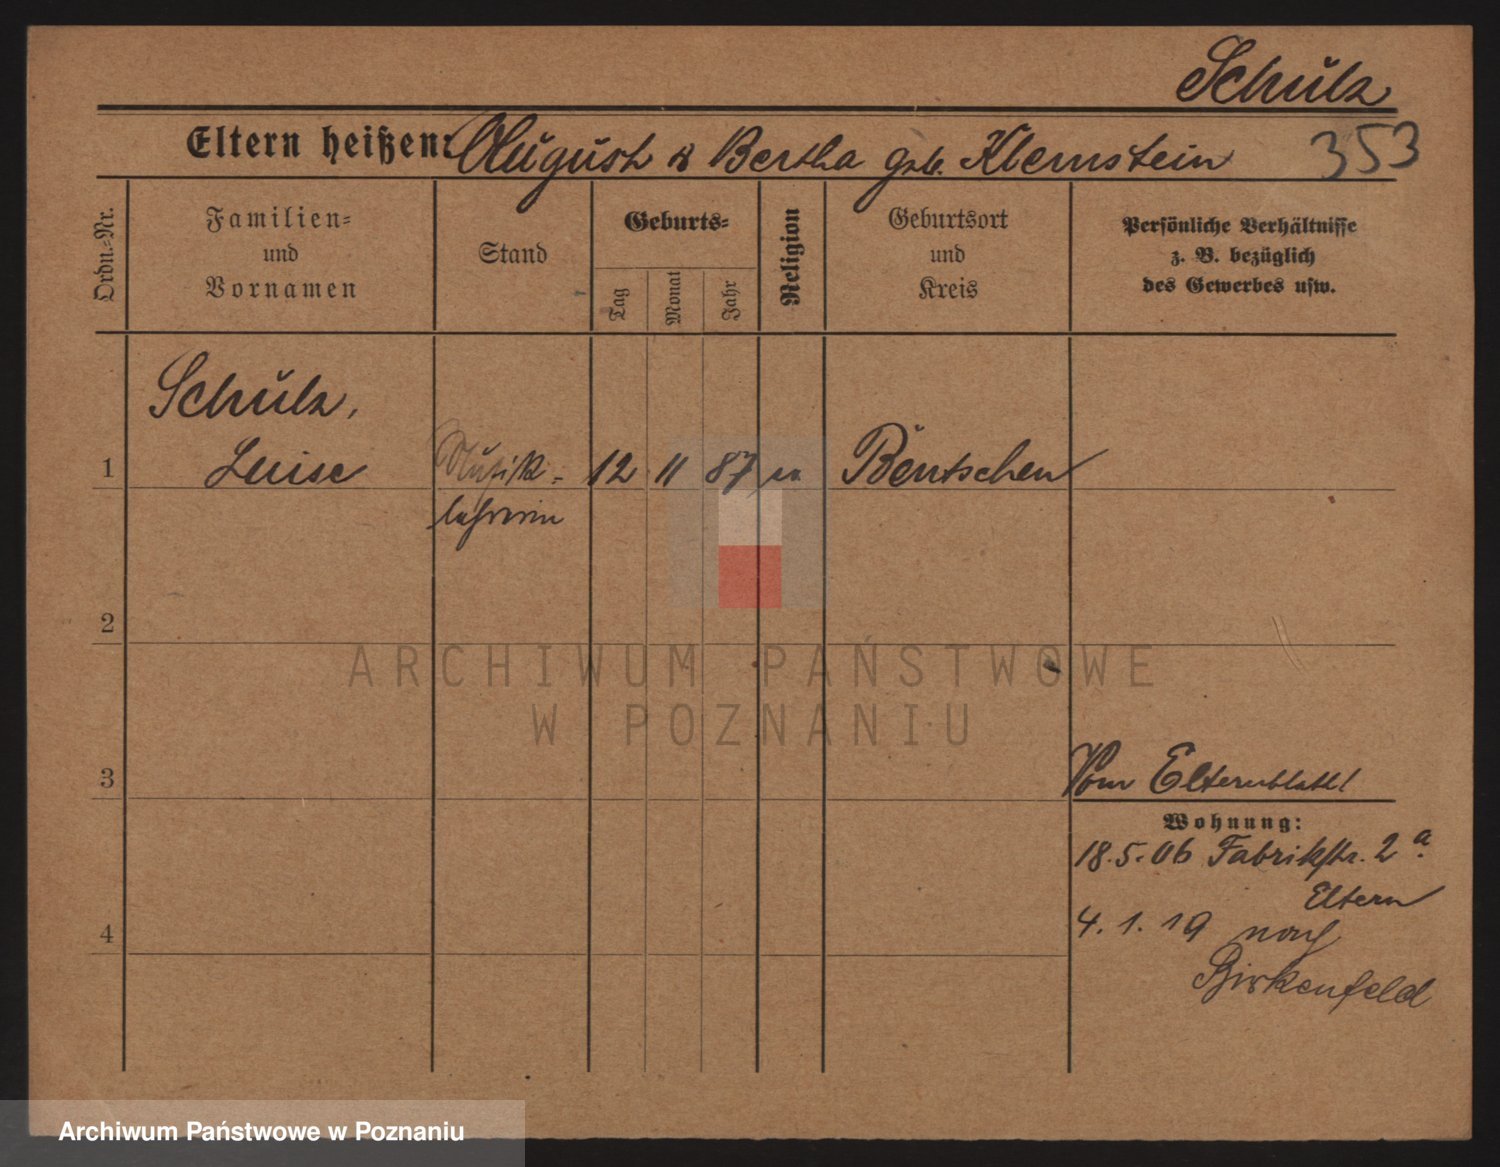 Schulz
Eltern heißen: August & Bertha geb. Klemstein 353
Ordn.-Nr.
Familien-
und
Vornamen
Stand
Geburts-
Tag
Monat
Jahr
Religion
Geburtsort
und
Kreis
Persönliche Verhältnisse
z. B. bezüglich
des Gewerbes usw.
Schulz,
1 Luise Musik- 12 11 87 Bentschen
lehrerin
2
ARCHIWUM PAŃSTWOWE
W POZNANIU
3 Vom Elternblatt!
Wohnung:
18.5.06 Fabrikstr. 2a.
Eltern
4 4.1.19 nach
Birkenfeld
Archiwum Państwowe w Poznaniu